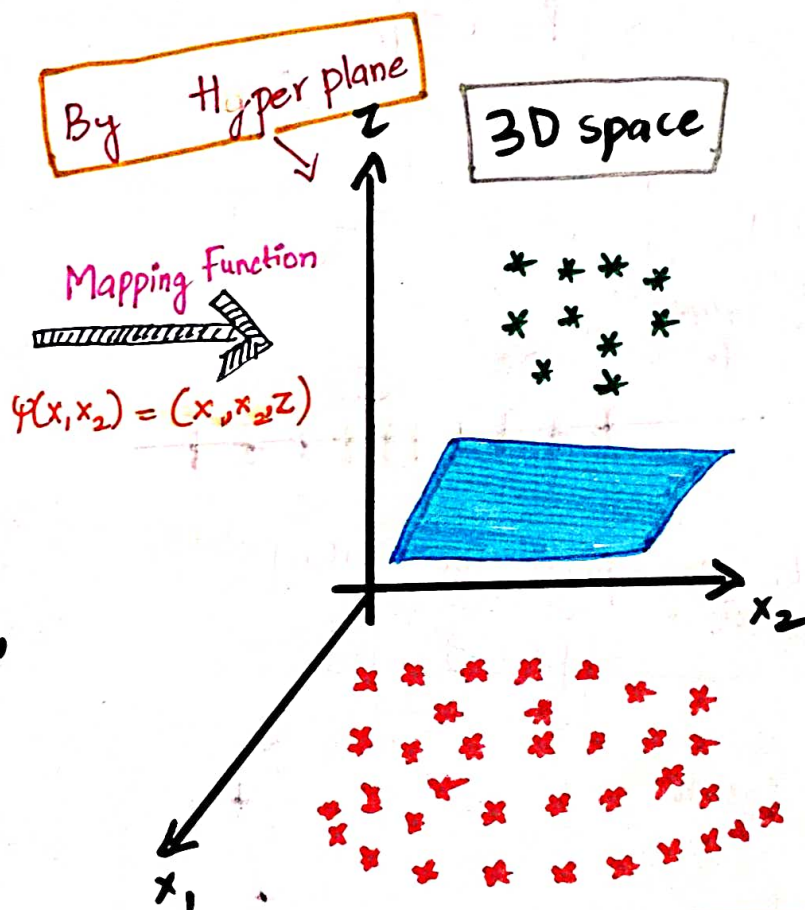 By Hyper plane
3D space
Z
Mapping Function
φ(x₁x₂) = (x₁,x₂,z)
x₂
x₁